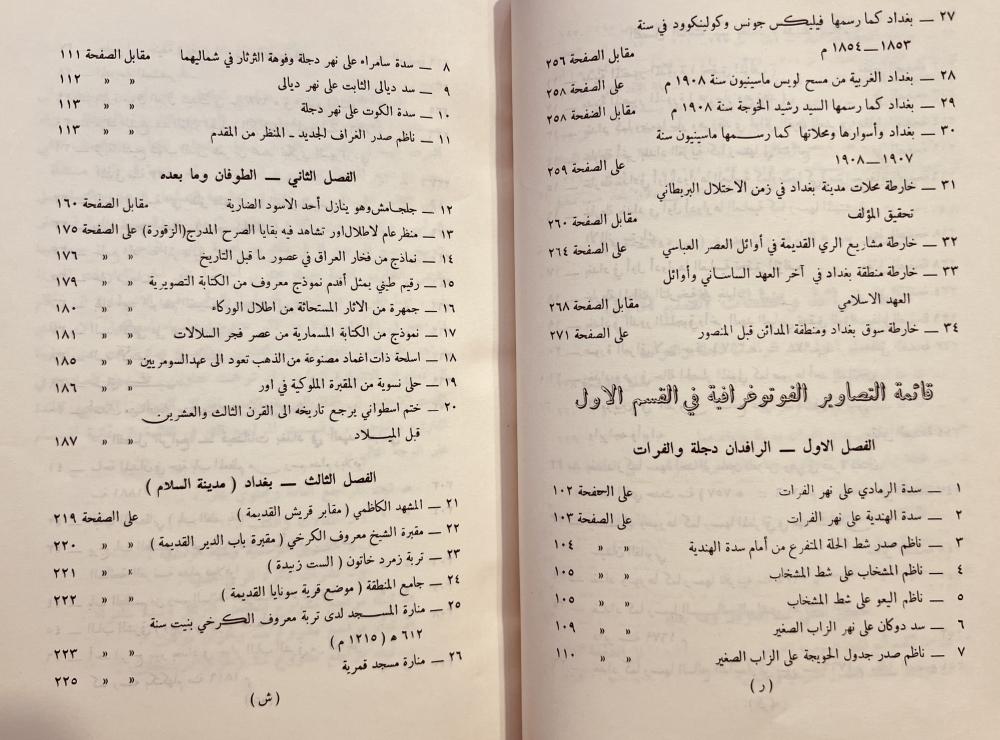 ٢٧ — بغداد كما رسمها فيليكس جونس وكولينكوود في سنة
١٨٥٣ — ١٨٥٤ م مقابل الصفحة ٢٥٦
٢٨ — بغداد الغربية من مسح لويس ماسينيون سنة ١٩٠٨ م على الصفحة ٢٥٨
٢٩ — بغداد كما رسمها السيد رشيد الخوجة سنة ١٩٠٨ م مقابل الصفحة ٢٥٨
٣٠ — بغداد وأسوارها ومحلاتها كما رسمها ماسينيون سنة
١٩٠٧ — ١٩٠٨ على الصفحة ٢٥٩
٣١ — خارطة محلات مدينة بغداد في زمن الاحتلال البريطاني
تحقيق المؤلف مقابل الصفحة ٢٦٠
٣٢ — خارطة مشاريع الري القديمة في أوائل العصر العباسي على الصفحة ٢٦٤
٣٣ — خارطة منطقة بغداد في آخر العهد الساساني وأوائل
العهد الاسلامي مقابل الصفحة ٢٦٨
٣٤ — خارطة سوق بغداد ومنطقة المدائن قبل المنصور على الصفحة ٢٧١
قائمة التصاوير الفوتوغرافية في القسم الاول
الفصل الاول — الرافدان دجلة والفرات
١ — سدة الرمادي على نهر الفرات على الحفحة ١٠٢
٢ — سدة الهندية على نهر الفرات على الصفحة ١٠٣
٣ — ناظم صدر شط الحلة المتفرع من أمام سدة الهندية » » ١٠٤
٤ — ناظم المشخاب على شط المشخاب » » ١٠٥
٥ — ناظم اليعو على شط المشخاب » » ١٠٥
٦ — سد دوكان على نهر الزاب الصغير » » ١٠٩
٧ — ناظم صدر جدول الحويجة على الزاب الصغير » » ١١٠
( ر )
٨ — سدة سامراء على نهر دجلة وفوهة الثرثار في شماليهما مقابل الصفحة ١١١
٩ — سد ديالى الثابت على نهر ديالى » » ١١٢
١٠ — سدة الكوت على نهر دجلة » » ١١٣
١١ — ناظم صدر الغراف الجديد ــ المنظر من المقدم » » ١١٣
الفصل الثاني — الطوفان وما بعده
١٢ — جلجامش وهو ينازل أحد الاسود الضارية مقابل الصفحة ١٦٠
١٣ — منظر عام لاطلال اور تشاهد فيه بقايا الصرح المدرج (الزقورة) على الصفحة ١٧٥
١٤ — نماذج من فخار العراق في عصور ما قبل التاريخ » » ١٧٦
١٥ — رقيم طيني يمثل أقدم نموذج معروف من الكتابة التصويرية » » ١٧٩
١٦ — جمهرة من الاثار المستحاثة من اطلال الوركاء » » ١٨٠
١٧ — نموذج من الكتابة المسمارية من عصر فجر السلالات » » ١٨١
١٨ — اسلحة ذات اغماد مصنوعة من الذهب تعود الى عهد السومريين » » ١٨٥
١٩ — حلى نسوية من المقبرة الملوكية في اور » » ١٨٦
٢٠ — ختم اسطواني يرجع تاريخه الى القرن الثالث والعشرين
قبل الميلاد » » ١٨٧
الفصل الثالث — بغداد ( مدينة السلام )
٢١ — المشهد الكاظمي ( مقابر قريش القديمة ) على الصفحة ٢١٩
٢٢ — مقبرة الشيخ معروف الكرخي ( مقبرة باب الدير القديمة ) » » ٢٢٠
٢٣ — تربة زمرد خاتون ( الست زبيدة ) » » ٢٢١
٢٤ — جامع المنطقة ( موضع قرية سونايا القديمة ) » » ٢٢٢
٢٥ — منارة المسجد لدى تربة معروف الكرخي بنيت سنة
٦١٢ ه ( ١٢١٥ م ) » » ٢٢٣
٢٦ — منارة مسجد قمرية » » ٢٢٥
( ش )